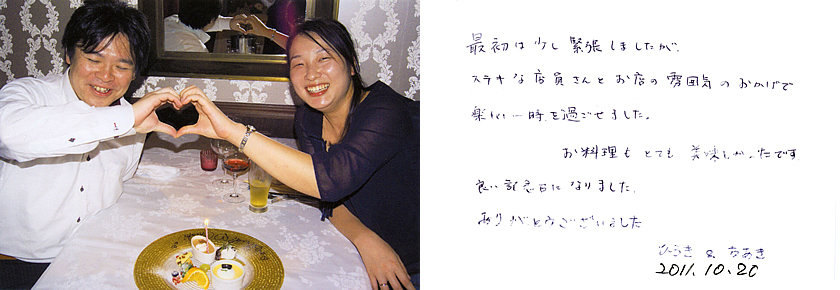 最初は少し緊張しましたが、
ステキな店員さんとお店の雰囲気のおかげで
楽しい一時を過ごせました。
お料理もとても美味しかったです
良い記念日になりました。
ありがとうございました
ひろき & ちあき
2011.10.20